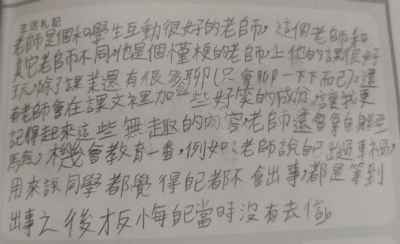 生活札記
老師是個和學生互動很好的老師，這個老師和
其它老師不同，他是個懂梗的老師，上他的課很好
玩，除了課業還有很多聊(只會聊一下下而已)，還
有老師會在課文裡加一些好笑的成份，讓我更
記得起來這些無趣的內容，老師還會拿自己經
驗，機會教育一番，例如：老師說自己出過車禍，
用來讓同學都覺得自己都不會出事，都是等到
出事之後才反悔自己當時沒有去信。